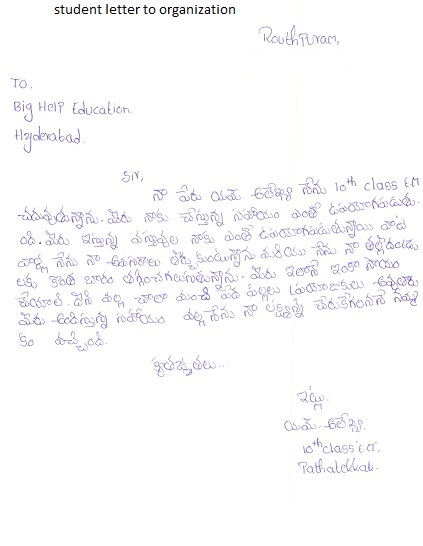 student letter to organization
Routhpuram,
TO,
Big Help Education
Hyderabad.
Sir,
నా పేరు యమ్ శిరీష నేను 10th class EM
చదువుతున్నాను. మీరు నాకు చేస్తున్న సహాయం ఎంతో ఉపయోగపడుతు
ంది. మీరు ఇస్తున్న వస్తువుల నాకు ఎంతో ఉపయోగపడుతున్నాయి వాటి
వాళ్ల నేను నా అవసరాలు తీర్చుకుంటున్నాను మరియు నేను నా తల్లిదండ్రు
లకు కొంత బారం తగ్గించగలుగుతున్నాను. మీరు ఇలానే ఇంకా సాయం
చేయాలి. దీని వల్ల చాలా మంది పేద పిల్లలు ప్రయోజకులు అవుతారు
మీరు అందిస్తున్న సహాయం వల్ల నేను నా లక్ష్యాన్ని చేరుకోగలననే నమ్మ
కం వచ్చింది.
కృతజ్ఞతలు...
ఇట్లు,
యమ్
10th class EM,